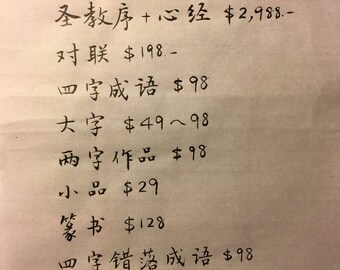 圣教序+心经 $2,988.-
对联 $198.-
四字成语 $98
大字 $49~98
两字作品 $98
小品 $29
篆书 $128
四字错落成语 $98